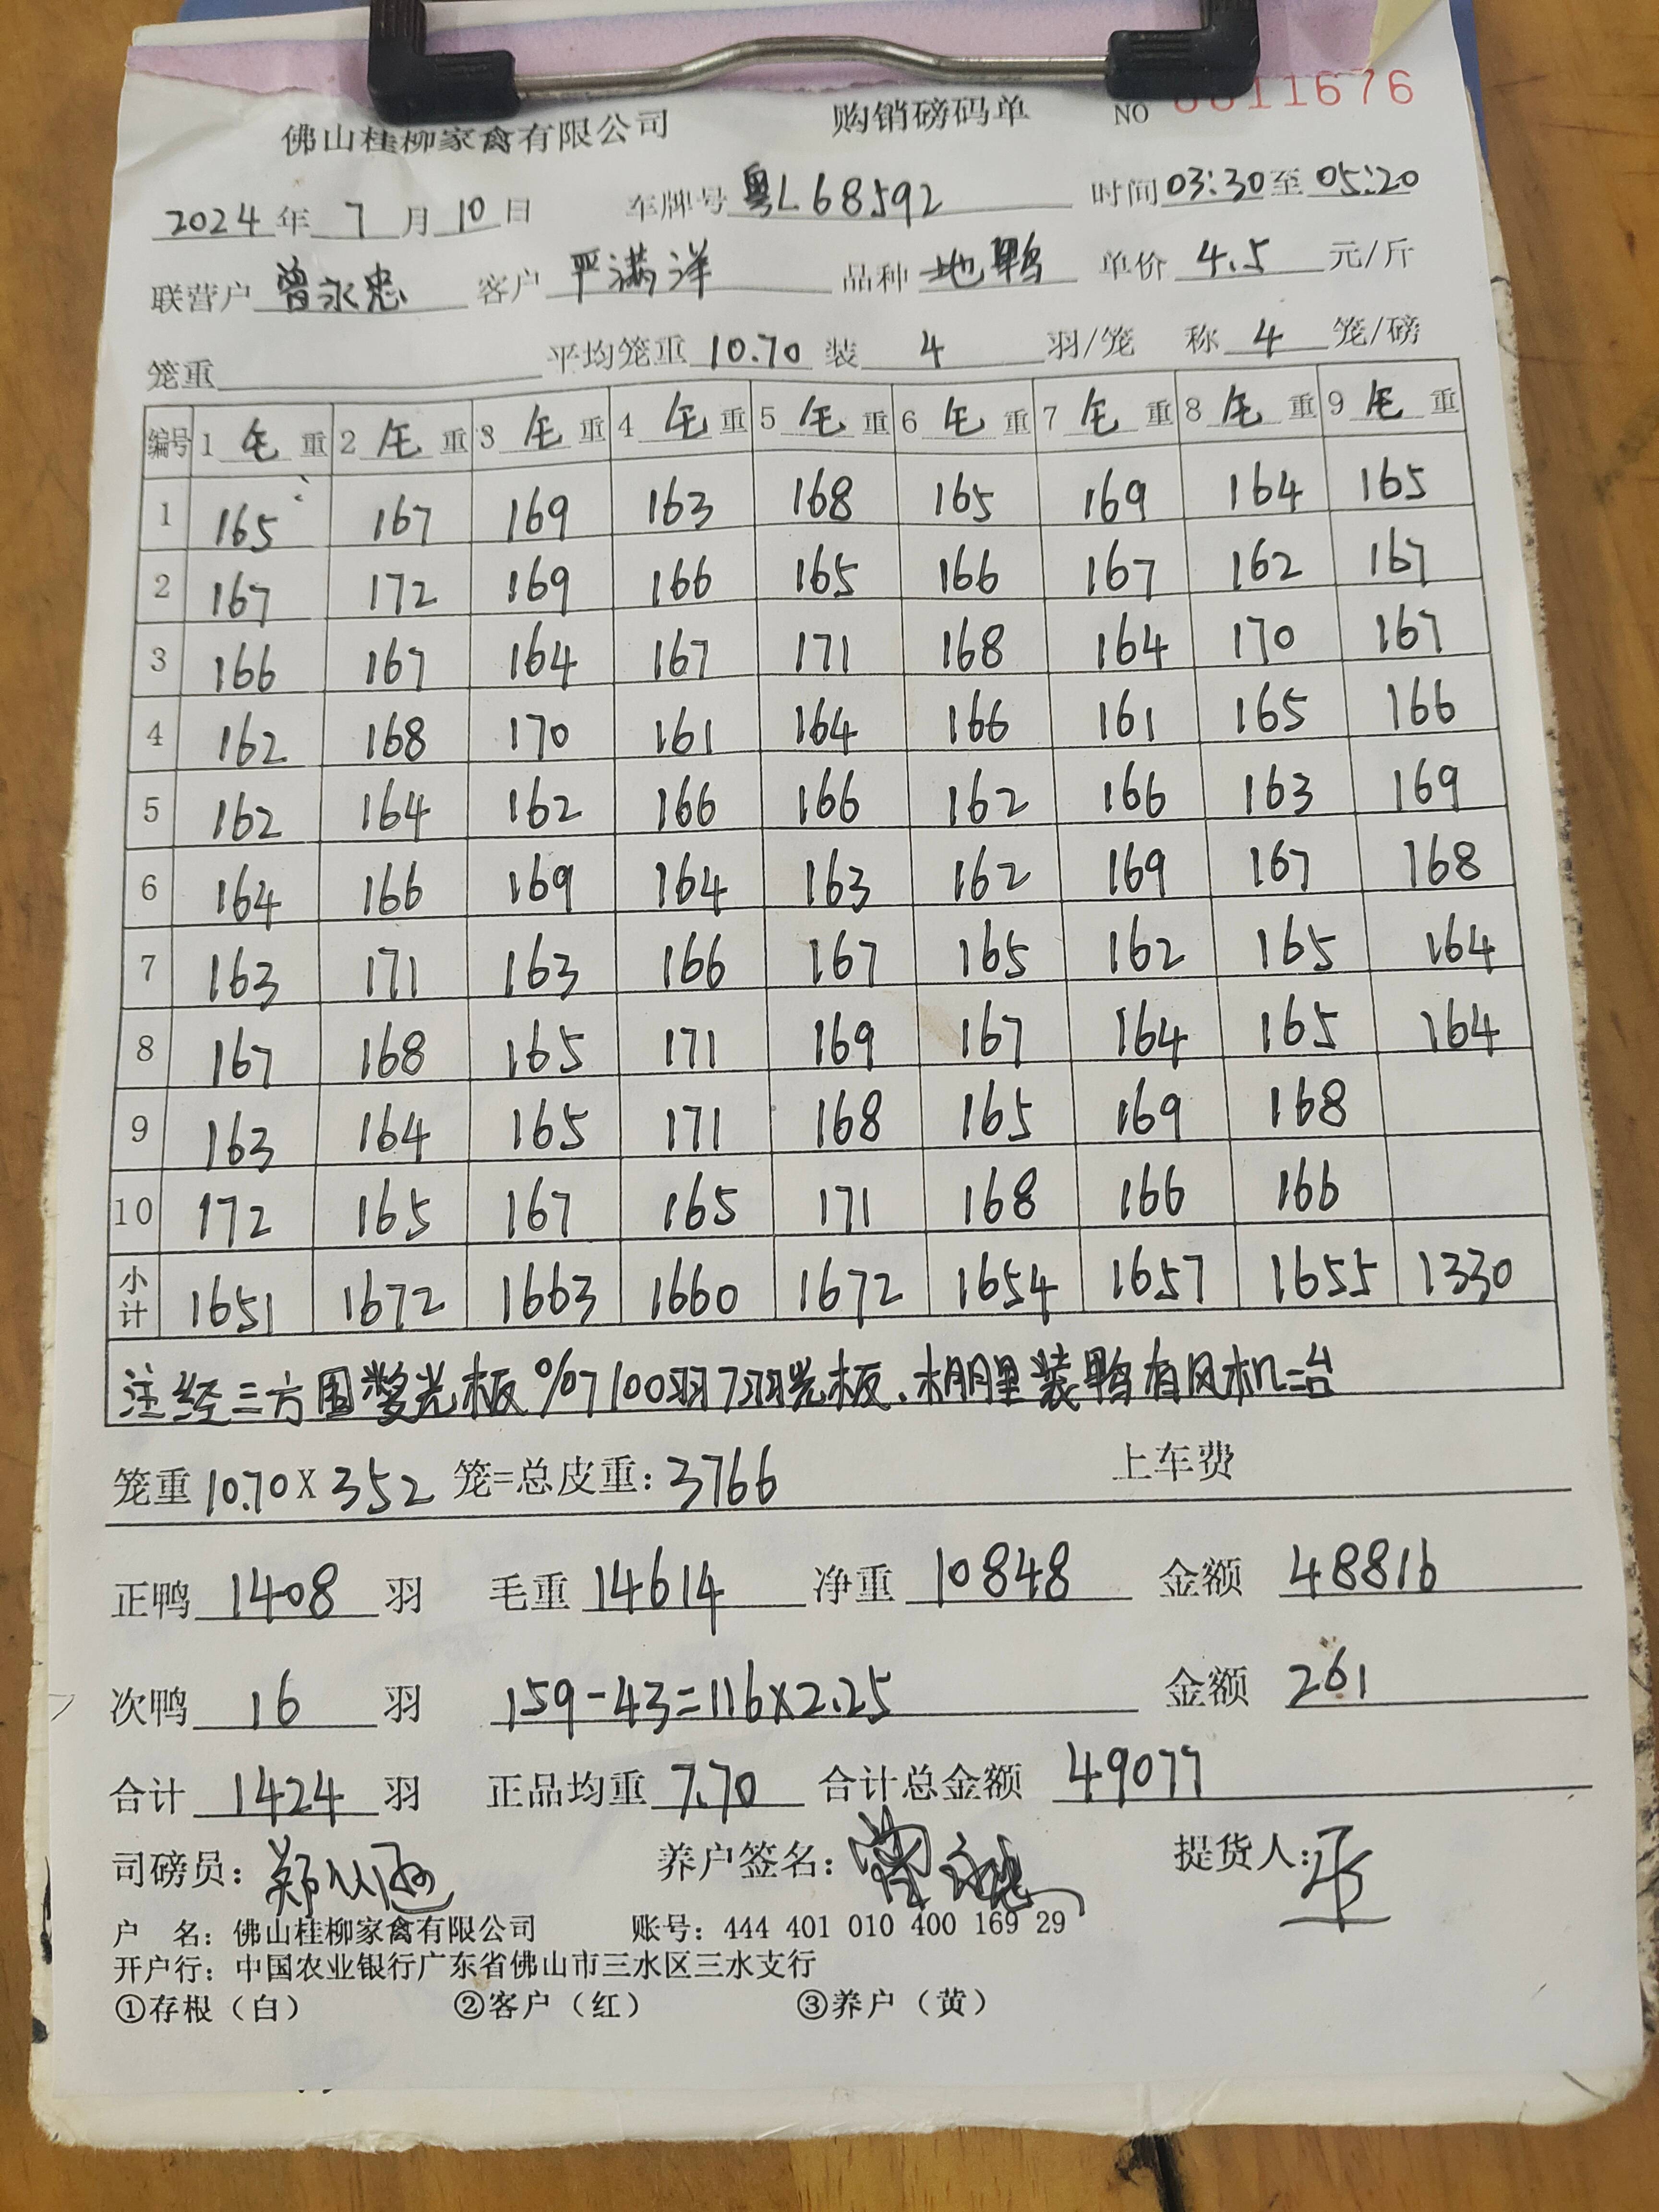 佛山桂柳家禽有限公司 购销磅码单 NO 0011676
2024年 7 月 10 日 车牌号 粤L68592 时间 03:30 至 05:20
联营户 曾永忠 客户 严满洋 品种 地鸭 单价 4.5 元/斤
笼重 平均笼重 10.70 装 4 羽/笼 称 4 笼/磅
编号 1 毛 重 2 毛 重 3 毛 重 4 毛 重 5 毛 重 6 毛 重 7 毛 重 8 毛 重 9 毛 重
1 165 167 169 163 168 165 169 164 165
2 167 172 169 166 165 166 167 162 167
3 166 167 164 167 171 168 164 170 167
4 162 168 170 161 164 166 161 165 166
5 162 164 162 166 166 162 166 163 169
6 164 166 169 164 163 162 169 167 168
7 163 171 163 166 167 165 162 165 164
8 167 168 165 171 169 167 164 165 164
9 163 164 165 171 168 165 169 168
10 172 165 167 165 171 168 166 166
小计 1651 1672 1663 1660 1672 1654 1657 1655 1330
注经三方围光板%7 100羽7羽光板.棚里装鸭有风机三台
笼重 10.70X352 笼=总皮重: 3766 上车费
正鸭 1408 羽 毛重 14614 净重 10848 金额 48816
次鸭 16 羽 159-43=116X2.25 金额 261
合计 1424 羽 正品均重 7.70 合计总金额 49077
司磅员: 养户签名: 提货人:
户 名: 佛山桂柳家禽有限公司 账号: 444 401 010 400 169 29
开户行: 中国农业银行广东省佛山市三水区三水支行
①存根（白） ②客户（红） ③养户（黄）